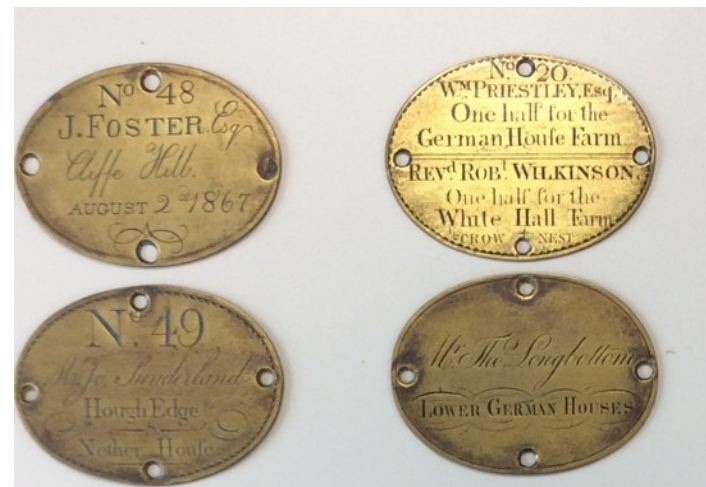 No 48
J. FOSTER, Esqr
Cliffe Hill.
AUGUST 2nd 1867
No. 20.
WM PRIESTLEY, Esqr
One half for the
German Houſe Farm
REVd ROBt WILKINSON.
One half for the
White Hall Farm
CROW NEST
No. 49
Mr Jo. Sunderland
Hough Edge
Nether Houſe
Mr Thos Longbottom
LOWER GERMAN HOUSES